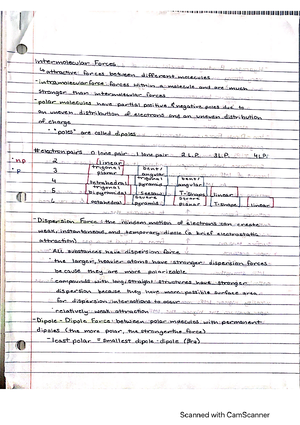 Intermolecular Forces
↳ attractive forces between different molecules
- intramolecular forces: forces within a molecule and are much
stronger than intermolecular forces
- polar molecules have partial positive & negative poles due to
an uneven distribution of electrons and an uneven distribution
of charge
- "poles" are called dipoles
# electron pairs 0 lone pair 1 lone pair 2 L.P. 3 L.P. 4 L.P.
2 linear
3 trigonal planar bent/angular
4 tetrahedral trigonal pyramid bent/angular
5 trigonal bipyramidal seesaw T-shape linear
6 octahedral square pyramid square planar T-shape linear
- Dispersion Force: the random motion of electrons can create
weak, instantaneous, and temporary dipole (a brief electrostatic
attraction)
- All substances have dispersion force
- the larger, heavier atoms have stronger dispersion forces
because they are more polarizable
- compounds with long/straight structures have stronger
dispersion because they have more possible surface area
for dispersion interactions to occur
- relatively weak attraction
- Dipole - Dipole Force: between polar molecules with permanent
dipoles (the more polar, the stronger the force)
- least polar = smallest dipole-dipole
Scanned with CamScanner